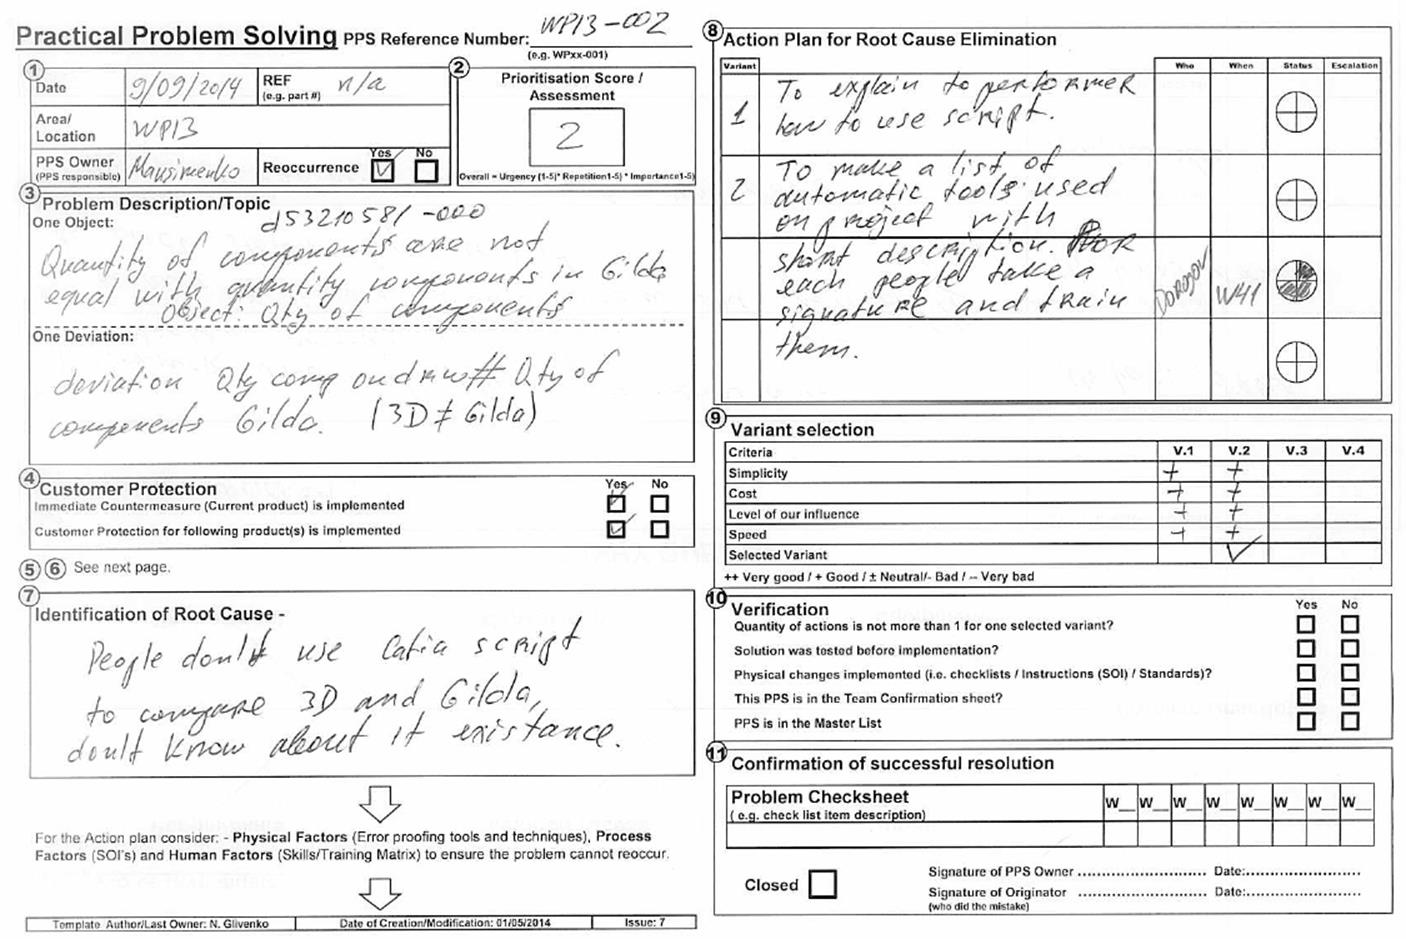 Practical Problem Solving PPS Reference Number: WP13-002
(e.g. WPxx-001)
1
Date 9/09/2014 REF (e.g. part #) n/a
Area/ Location WP13
PPS Owner (PPS responsible) Maksimenko Reoccurrence Yes No
2
Prioritisation Score /
Assessment
2
Overall = Urgency (1-5)* Repetition1-5) * Importance1-5)
3
Problem Description/Topic
One Object: d53210581-000
Quantity of components are not
equal with quantity components in Gilda
Object: Qty of components
One Deviation:
deviation Qty comp on draw ≠ Qty of
components Gilda. (3D ≠ Gilda)
4
Customer Protection Yes No
Immediate Countermeasure (Current product) is implemented
Customer Protection for following product(s) is implemented
5 6 See next page.
7
Identification of Root Cause -
People don't use Catia script
to compare 3D and Gilda,
don't know about it existance.
For the Action plan consider: - Physical Factors (Error proofing tools and techniques), Process
Factors (SOI's) and Human Factors (Skills/Training Matrix) to ensure the problem cannot reoccur.
Template Author/Last Owner: N. Glivenko Date of Creation/Modification: 01/05/2014 Issue: 7
8
Action Plan for Root Cause Elimination
Variant Who When Status Escalation
1 To explain to performer
how to use script.
2 To make a list of
automatic tools used
on project with
short description. For
each people take a
signature and train
them.
W41
9
Variant selection
Criteria V.1 V.2 V.3 V.4
Simplicity + +
Cost + +
Level of our influence + +
Speed + +
Selected Variant ✓
++ Very good / + Good / ± Neutral/- Bad / -- Very bad
10
Verification Yes No
Quantity of actions is not more than 1 for one selected variant?
Solution was tested before implementation?
Physical changes implemented (i.e. checklists / Instructions (SOI) / Standards)?
This PPS is in the Team Confirmation sheet?
PPS is in the Master List
11
Confirmation of successful resolution
Problem Checksheet W_ W_ W_ W_ W_ W_ W_ W_
( e.g. check list item description)
Closed
Signature of PPS Owner ........................ Date:........................
Signature of Originator ........................ Date:........................
(who did the mistake)